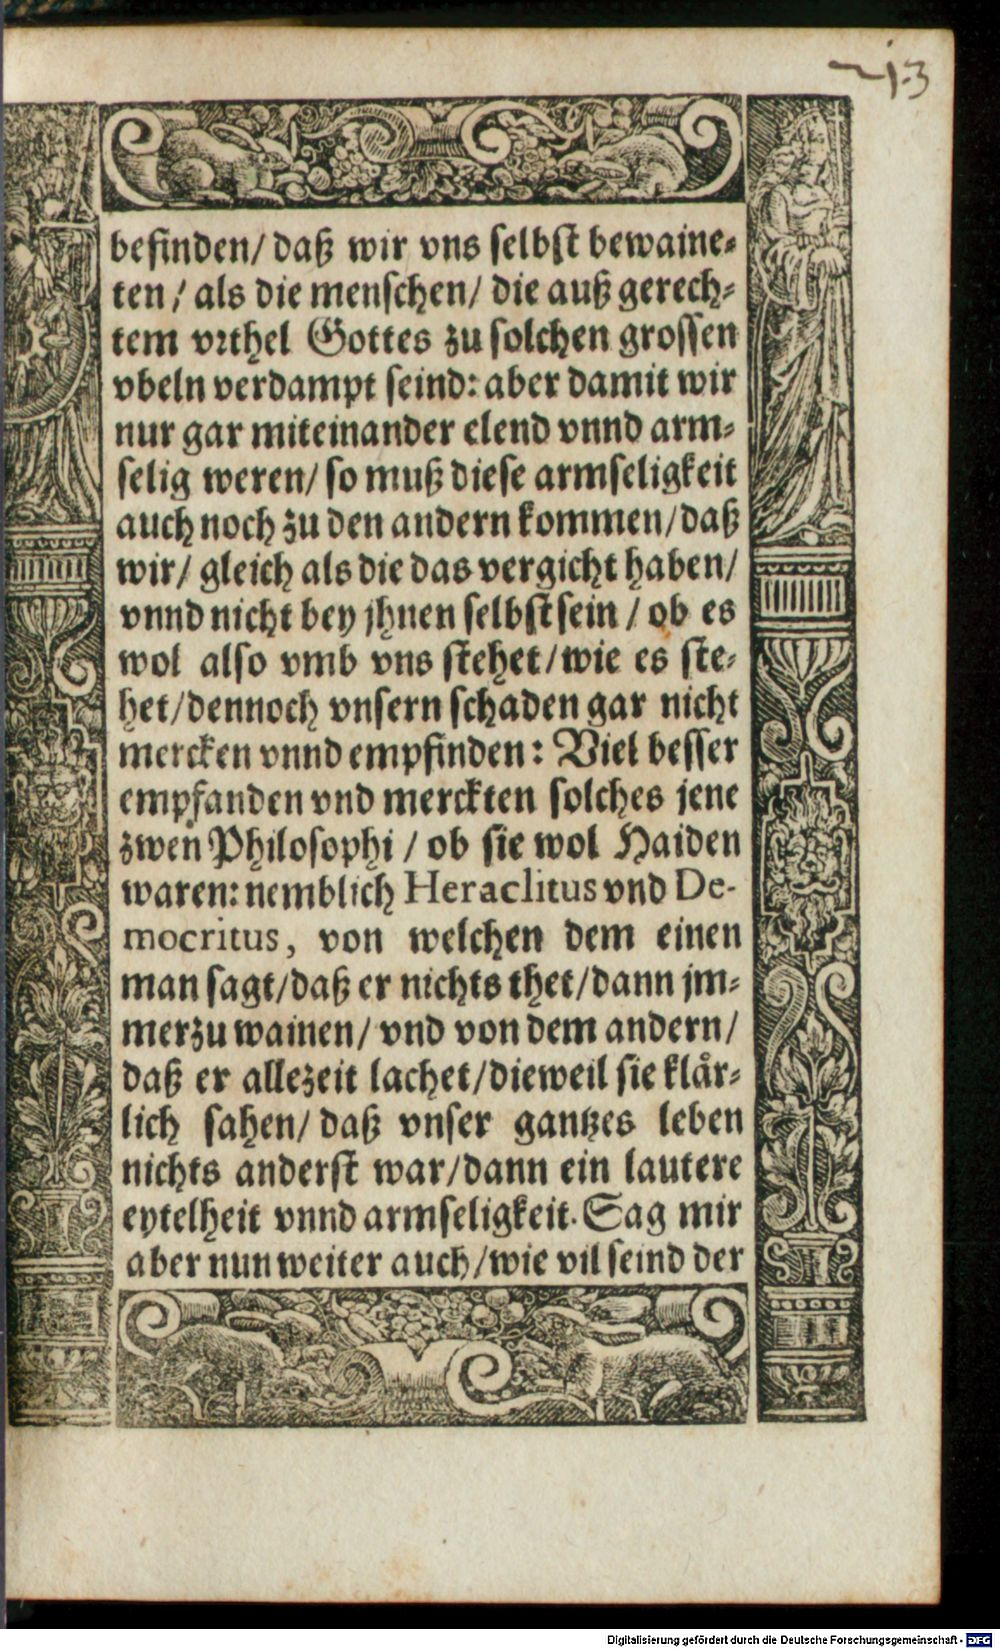 13
befinden/ daß wir vns selbst bewaine⸗
ten/ als die menschen/ die auß gerech⸗
tem vꝛthel Gottes zu solchen grossen
vbeln verdampt seind: aber damit wir
nur gar miteinander elend vnnd arm⸗
selig weren/ so muß diese armseligkeit
auch noch zu den andern kommen/ daß
wir/ gleich als die das vergicht haben/
vnnd nicht bey jhnen selbst sein / ob es
wol also vmb vns stehet/ wie es ste⸗
het/ dennoch vnsern schaden gar nicht
mercken vnnd empfinden: Viel besser
empfanden vnd merckten solches jene
zwen Philosophi / ob sie wol Haiden
waren: nemblich Heraclitus vnd De-
mocritus, von welchen dem einen
man sagt/ daß er nichts thet/ dann jm⸗
merzu wainen/ vnd von dem andern/
daß er allezeit lachet/ dieweil sie klaͤr⸗
lich sahen/ daß vnser gantzes leben
nichts anderst war/ dann ein lautere
eytelheit vnnd armseligkeit. Sag mir
aber nun weiter auch/ wie vil seind der
Digitalisierung gefördert durch die Deutsche Forschungsgemeinschaft - DFG